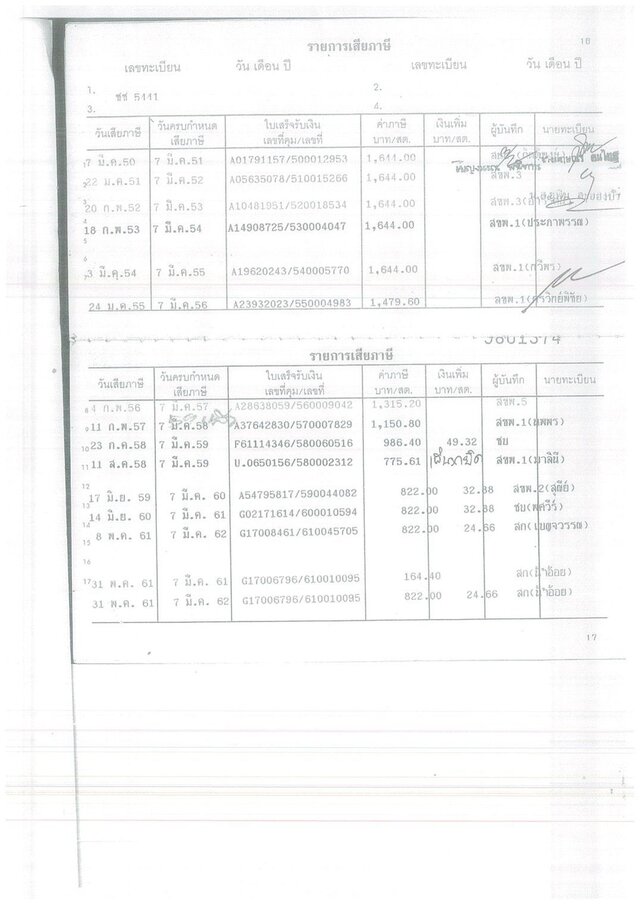 16
รายการเสียภาษี
เลขทะเบียน วัน เดือน ปี เลขทะเบียน วัน เดือน ปี
1. 2.
ชช 5441
3. 4.
วันเสียภาษี วันครบกำหนดเสียภาษี ใบเสร็จรับเงิน เลขที่คุม/เลขที่ ค่าภาษี บาท/สต. เงินเพิ่ม บาท/สต. ผู้บันทึก นายทะเบียน
7 มี.ค.50 7 มี.ค.51 A01791157/500012953 1,644.00
22 ม.ค.51 7 มี.ค.52 A05635078/510015266 1,644.00 สขพ.3
20 ก.พ.52 7 มี.ค.53 A10481951/520018534 1,644.00 สขพ.3
18 ก.พ.53 7 มี.ค.54 A14908725/530004047 1,644.00 สขพ.1(ประภาพรรณ)
3 มี.ค.54 7 มี.ค.55 A19620243/540005770 1,644.00 สขพ.1(กวีพร)
24 ม.ค.55 7 มี.ค.56 A23932023/550004983 1,479.60 สขพ.1(ศรวิทย์พิชัย)
รายการเสียภาษี
วันเสียภาษี วันครบกำหนดเสียภาษี ใบเสร็จรับเงิน เลขที่คุม/เลขที่ ค่าภาษี บาท/สต. เงินเพิ่ม บาท/สต. ผู้บันทึก นายทะเบียน
8 4 ก.พ.56 7 มี.ค.57 A28638059/560009042 1,315.20 สขพ.5
9 11 ก.พ.57 7 มี.ค.58 A37642830/570007829 1,150.80 สขพ.1(นพพร)
10 23 ก.ค.58 7 มี.ค.59 F61114346/580060516 986.40 49.32 ชบ
11 11 ส.ค.58 7 มี.ค.59 U.0650156/580002312 775.61 สขพ.1(มาลินี)
12
17 มิ.ย. 59 7 มี.ค. 60 A54795817/590044082 822.00 32.88 สขพ.2(สุณีย์)
13
14 มิ.ย. 60 7 มี.ค. 61 G02171614/600010594 822.00 32.88 ชบ
14
8 พ.ค. 61 7 มี.ค. 62 G17008461/610045705 822.00 24.66 สก(เบญจวรรณ)
15
16
17 31 พ.ค. 61 7 มี.ค. 61 G17006796/610010095 164.40 สก(น้ำอ้อย)
31 พ.ค. 61 7 มี.ค. 62 G17006796/610010095 822.00 24.66 สก(น้ำอ้อย)
17